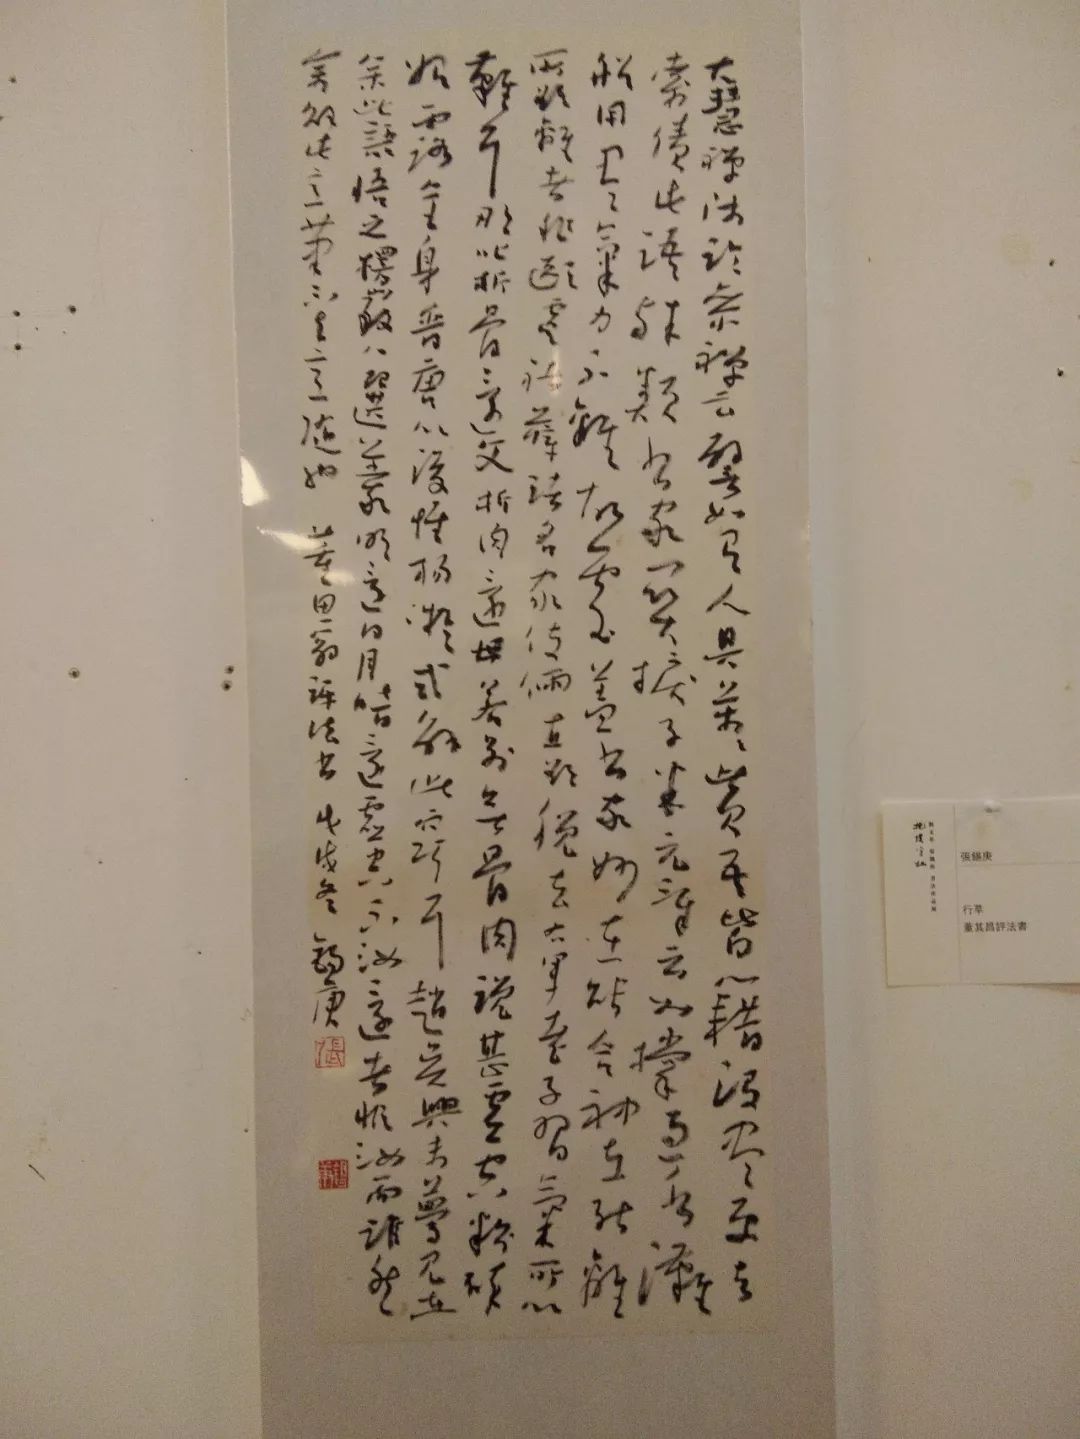 大慧禪師論參禪云譬如有人具萬〻貲吾皆籍沒盡更与
索債此語殊類書家關捩子米元章云如撐急水灘
船用盡氣力不離故處蓋書家妙在能合神在能離
所欲離者非歐虞褚薛諸名家伎倆直欲脫去右軍老子習氣所以
難耳那吒析骨還父析肉還母若別無骨肉說甚虛空粉碎
始露全身晉唐以後惟楊凝式解此竅耳趙吳興未夢見在
余此語悟之楞嚴八還義明還日月暗還虛空不汝還者非汝而誰然
余解此意筆不与意隨也 董思翁評法書 戊戌冬 錫庚
張錫庚
行草
董其昌評法書